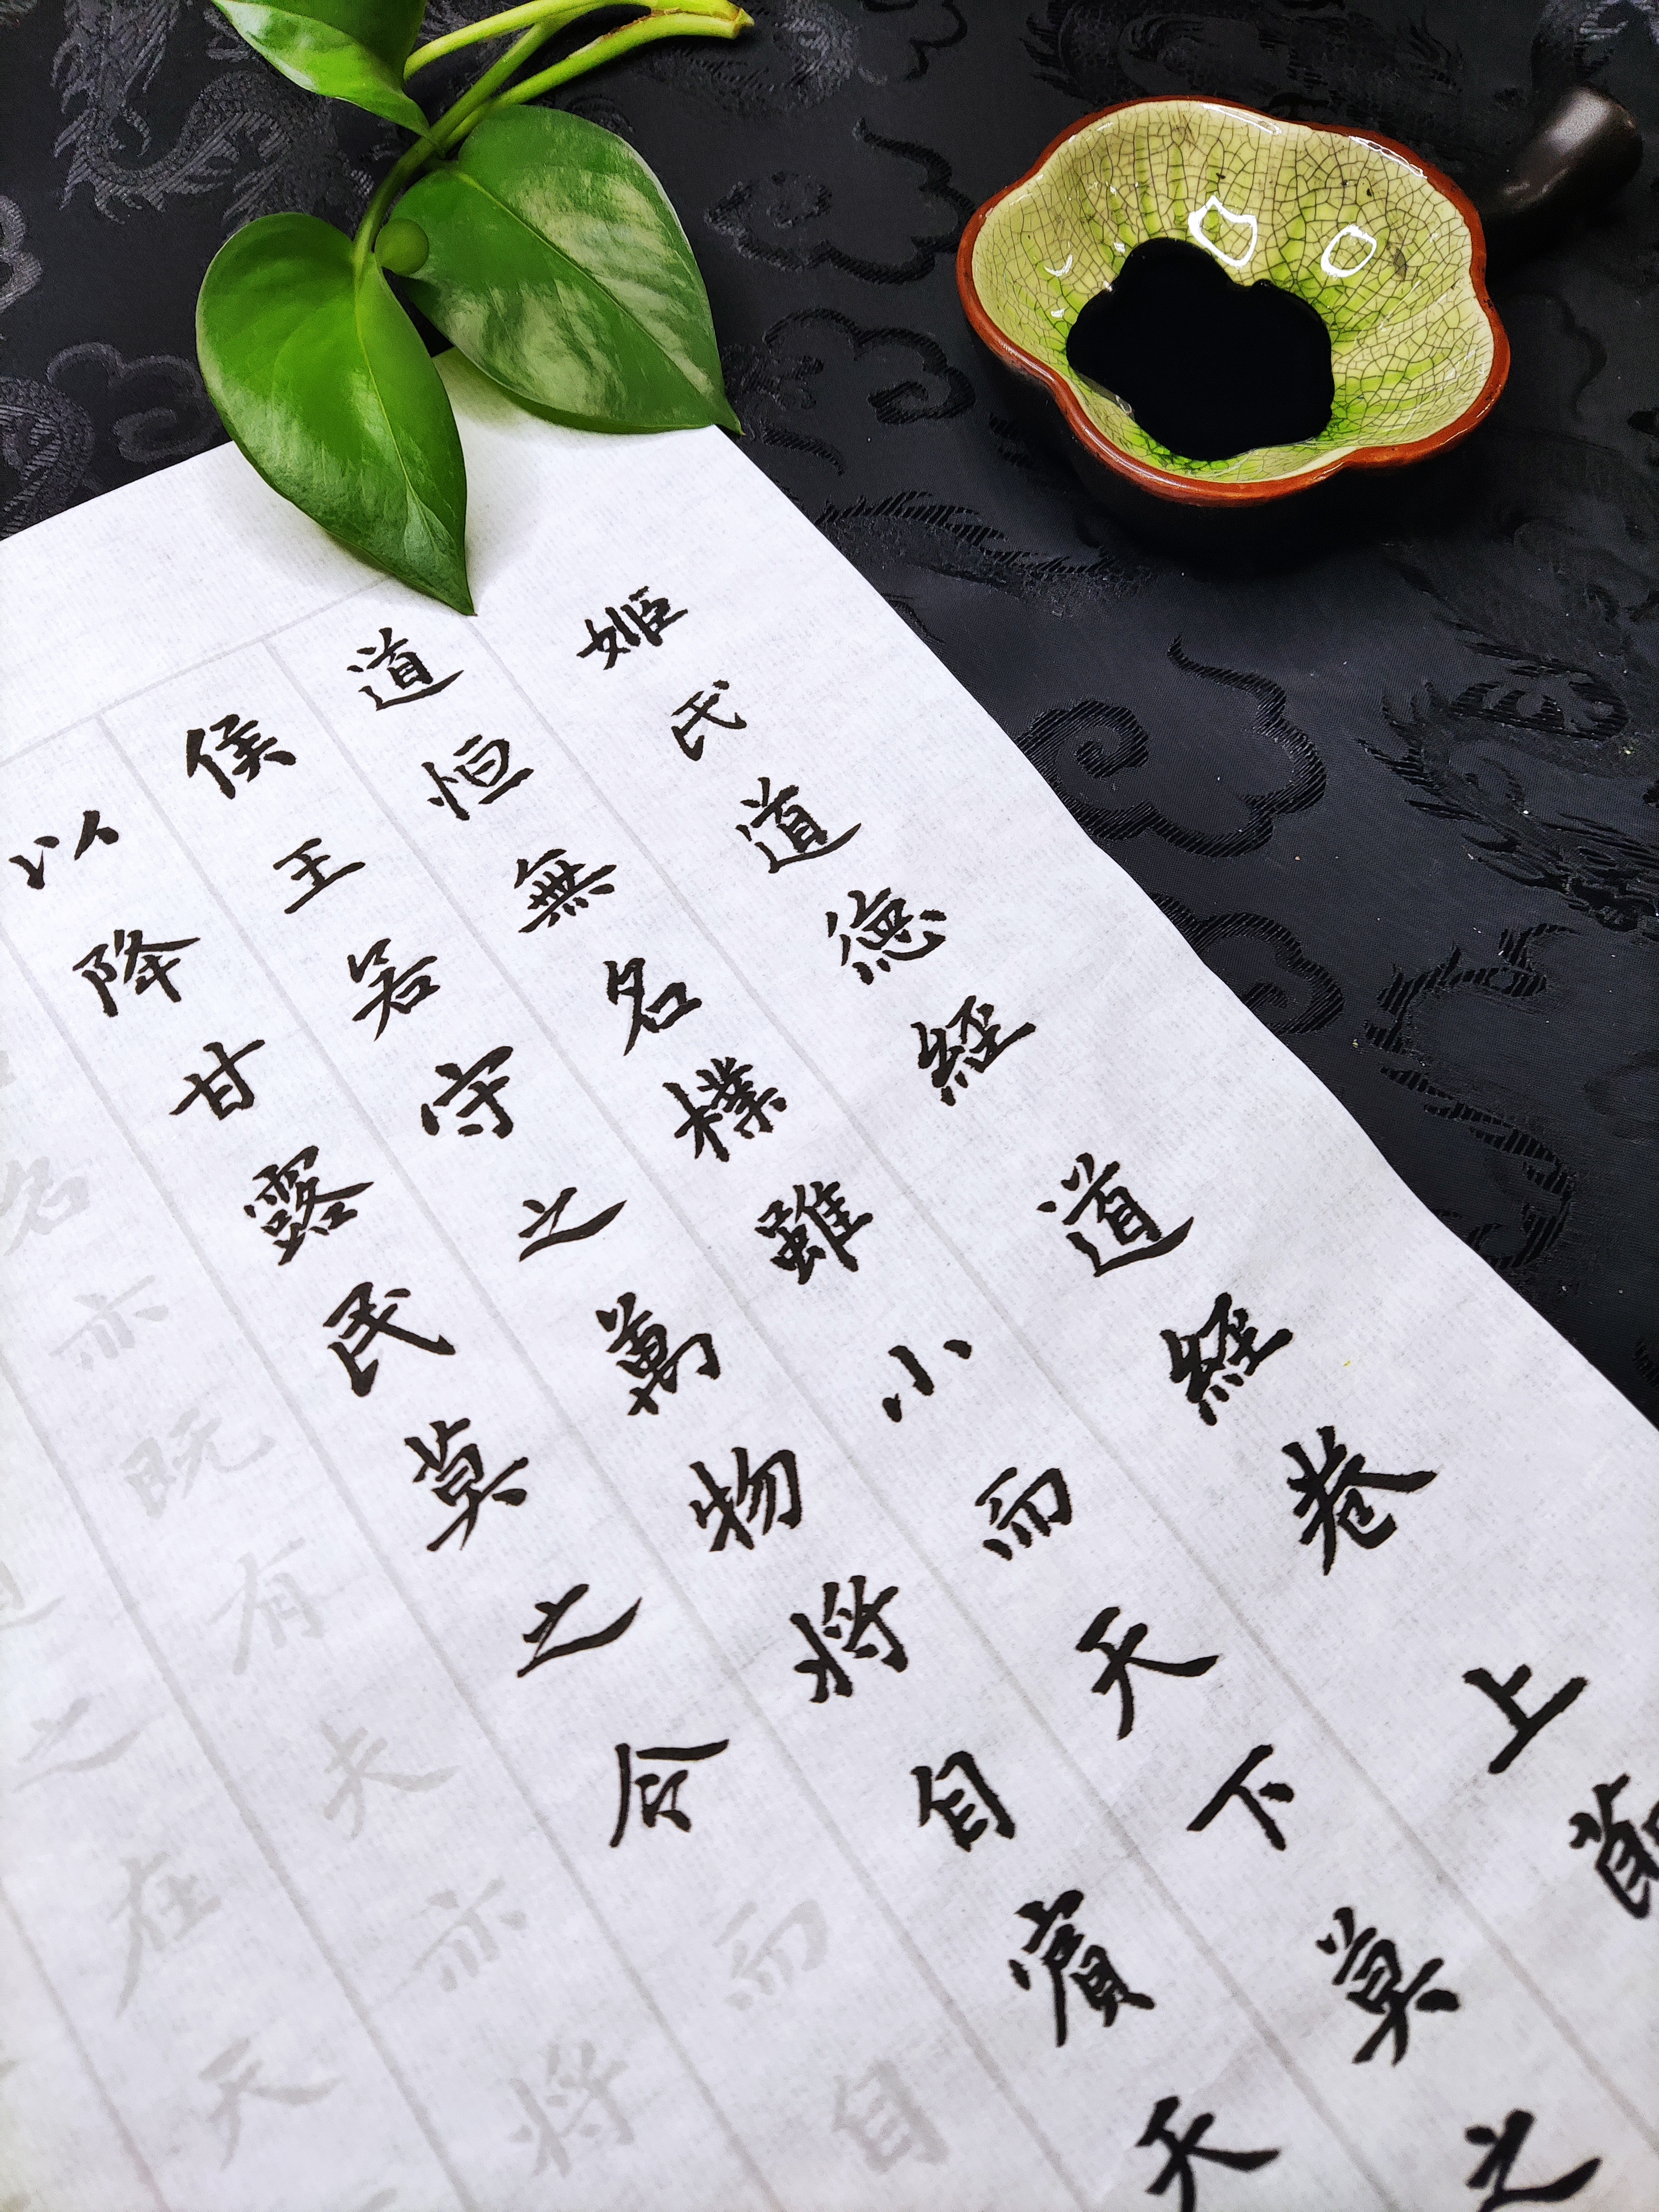 姬氏道德經 道經卷 上
道恒無名樸雖小而天下莫之
侯王若守之萬物將自賓天
以降甘露民莫之令而自
名亦既有夫亦將
之在天